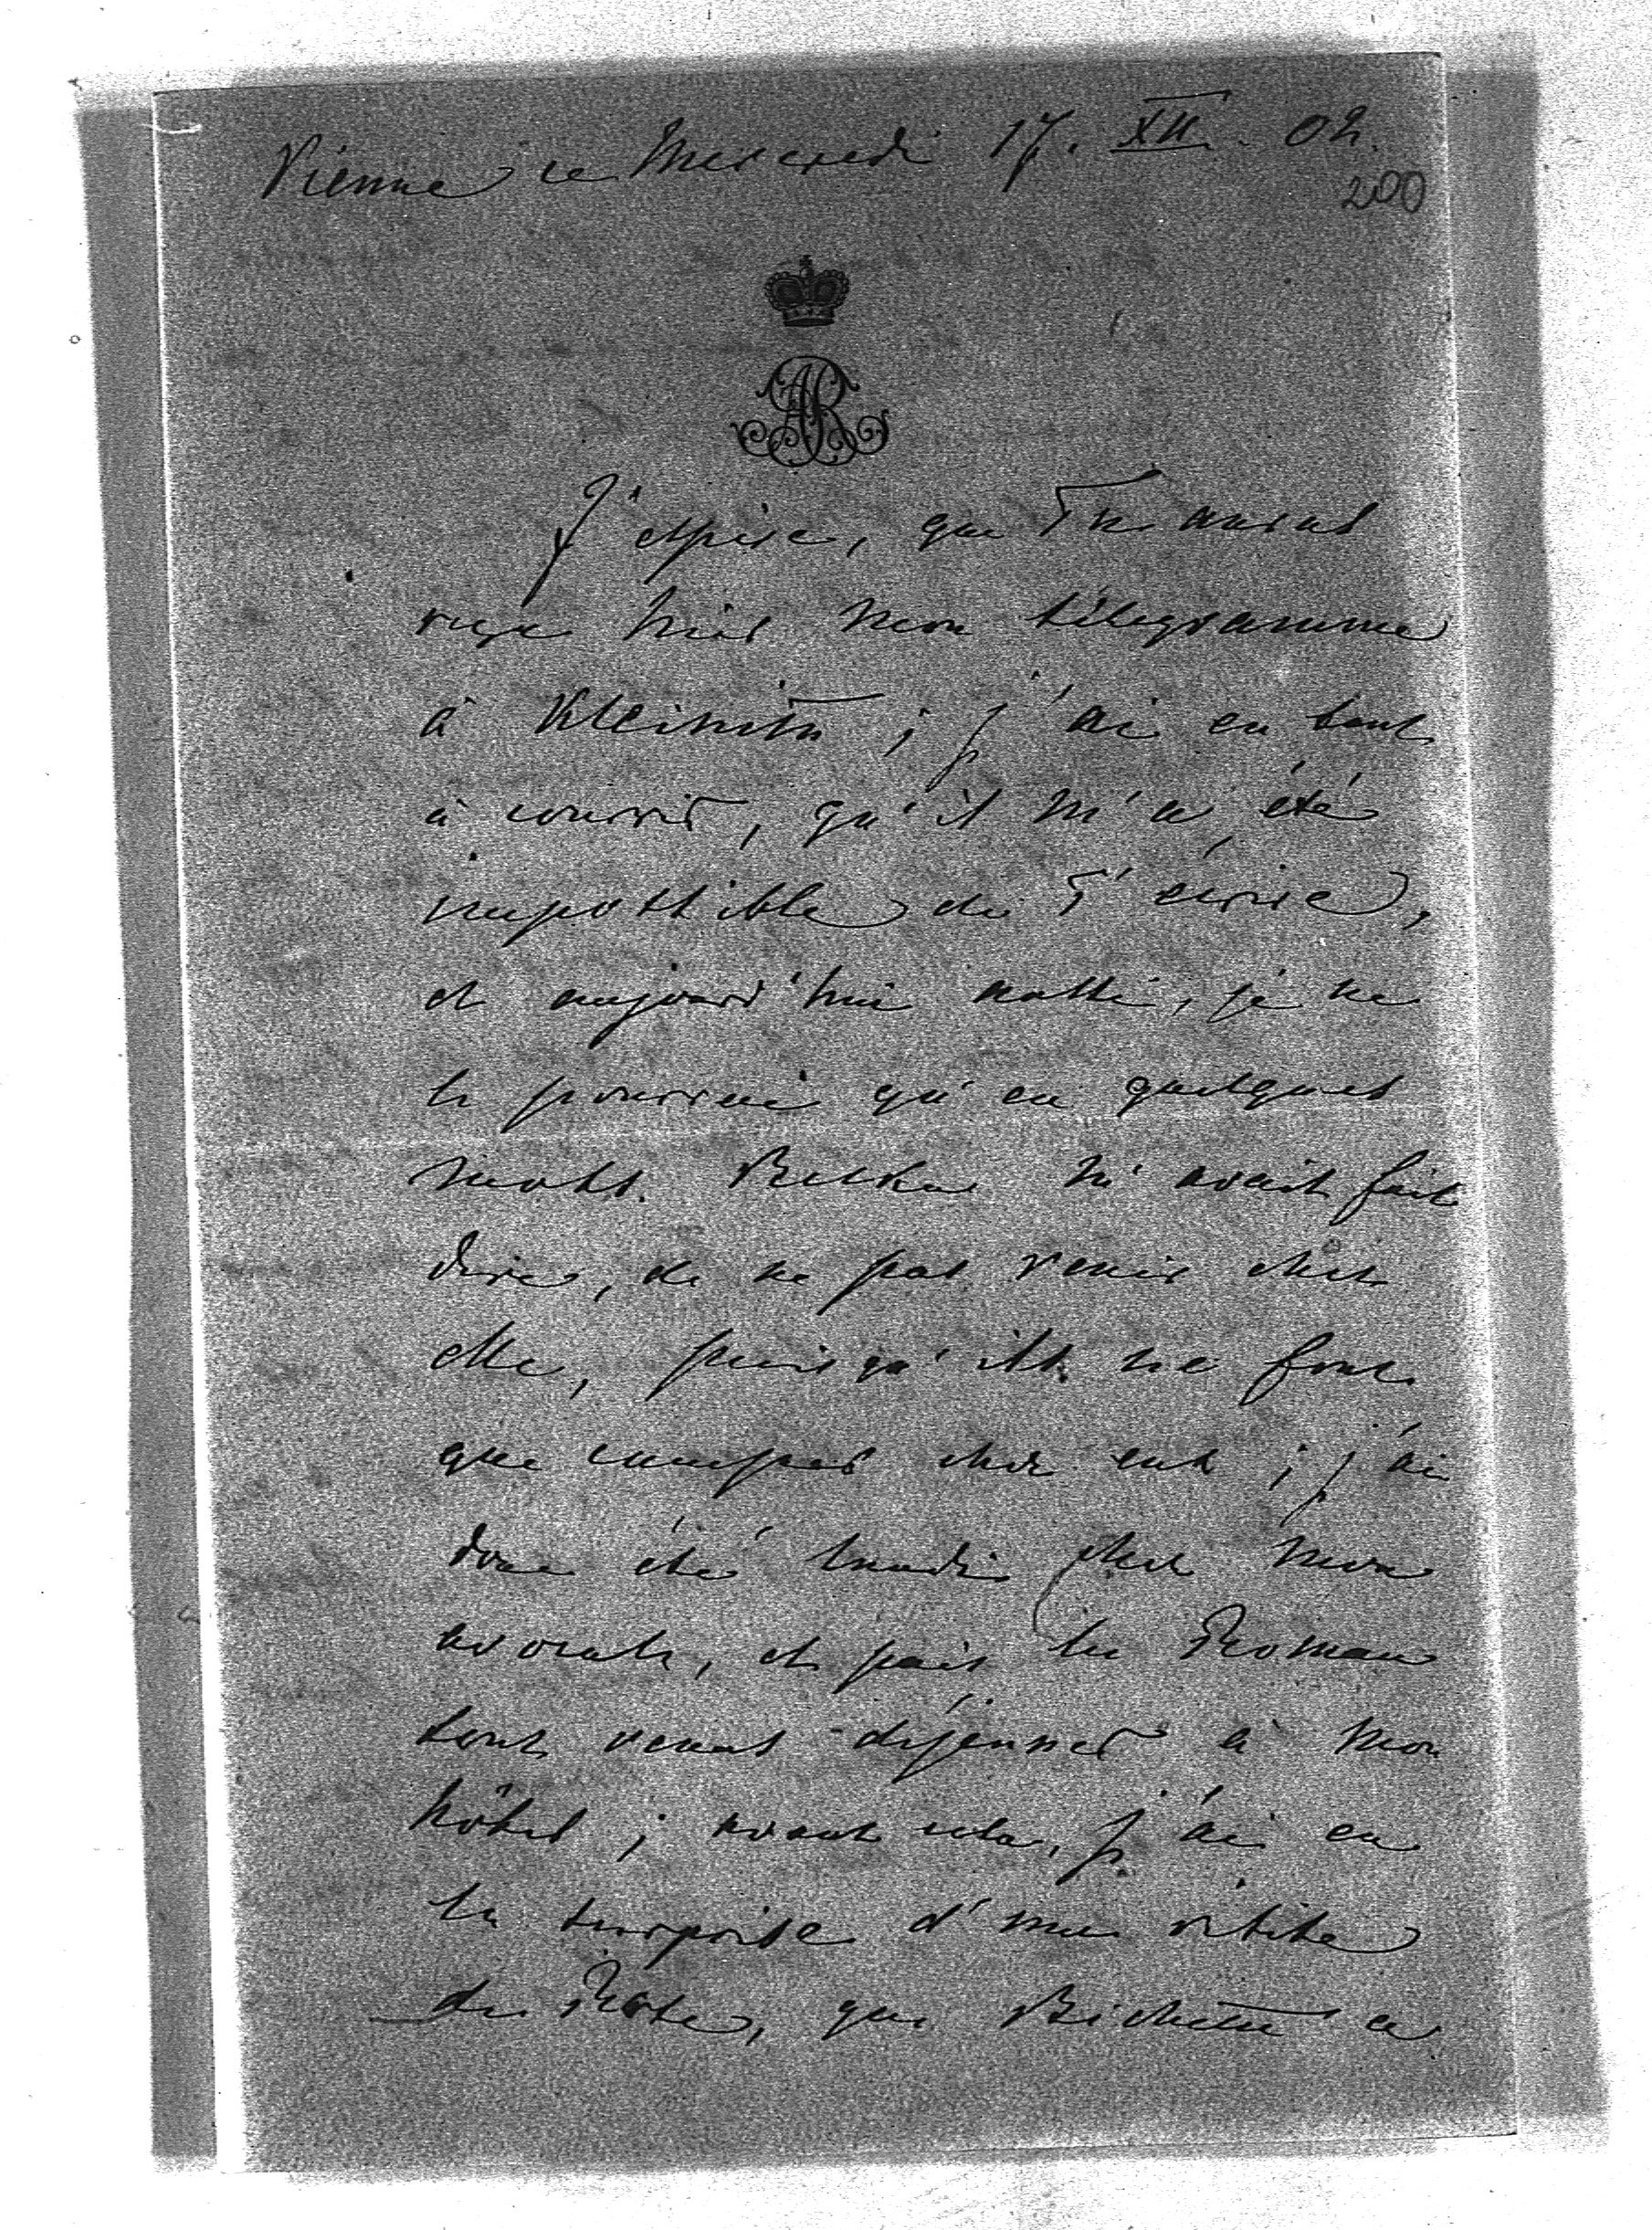 Vienne ce Mercredi 17. XII. 02.
200
AR
J'espère, que Tu auras
reçu hier mon télégramme
à Kleinitz ; j'ai eu tant
à courrir, qu'il m'a été
impossible de T'écrire,
et aujourd'hui aussi, je ne
le pourrai qu'en quelques
mots. Betka m'avait fait
dire, de ne pas venir chez
elle, puisqu'ils ne font
que camper chez eux ; j'ai
donc été lundi chez mon
avocat, et puis les Roman
sont venus déjeuner à mon
hôtel ; avant cela, j'ai eu
la surprise d'une visite
de Rose, que Bichette a